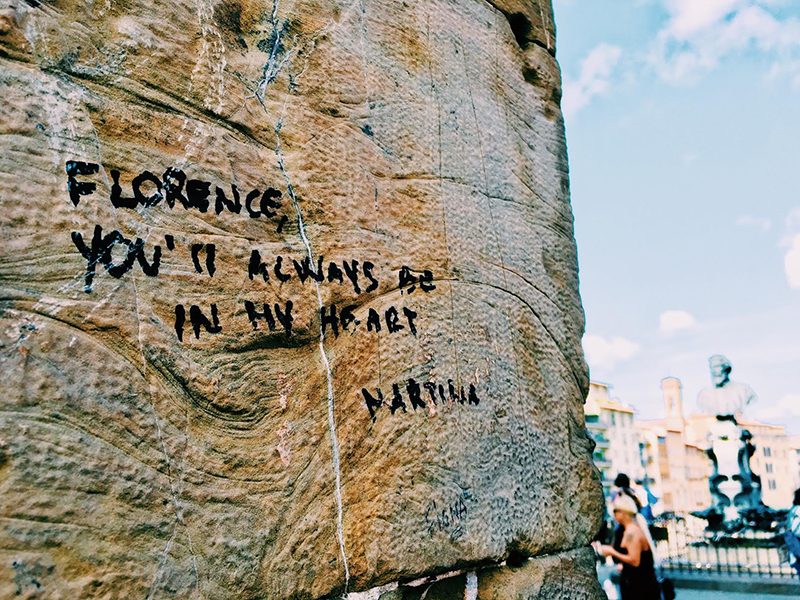 FLORENCE,
YOU'll ALWAYS BE
IN MY HEART
MARTINA